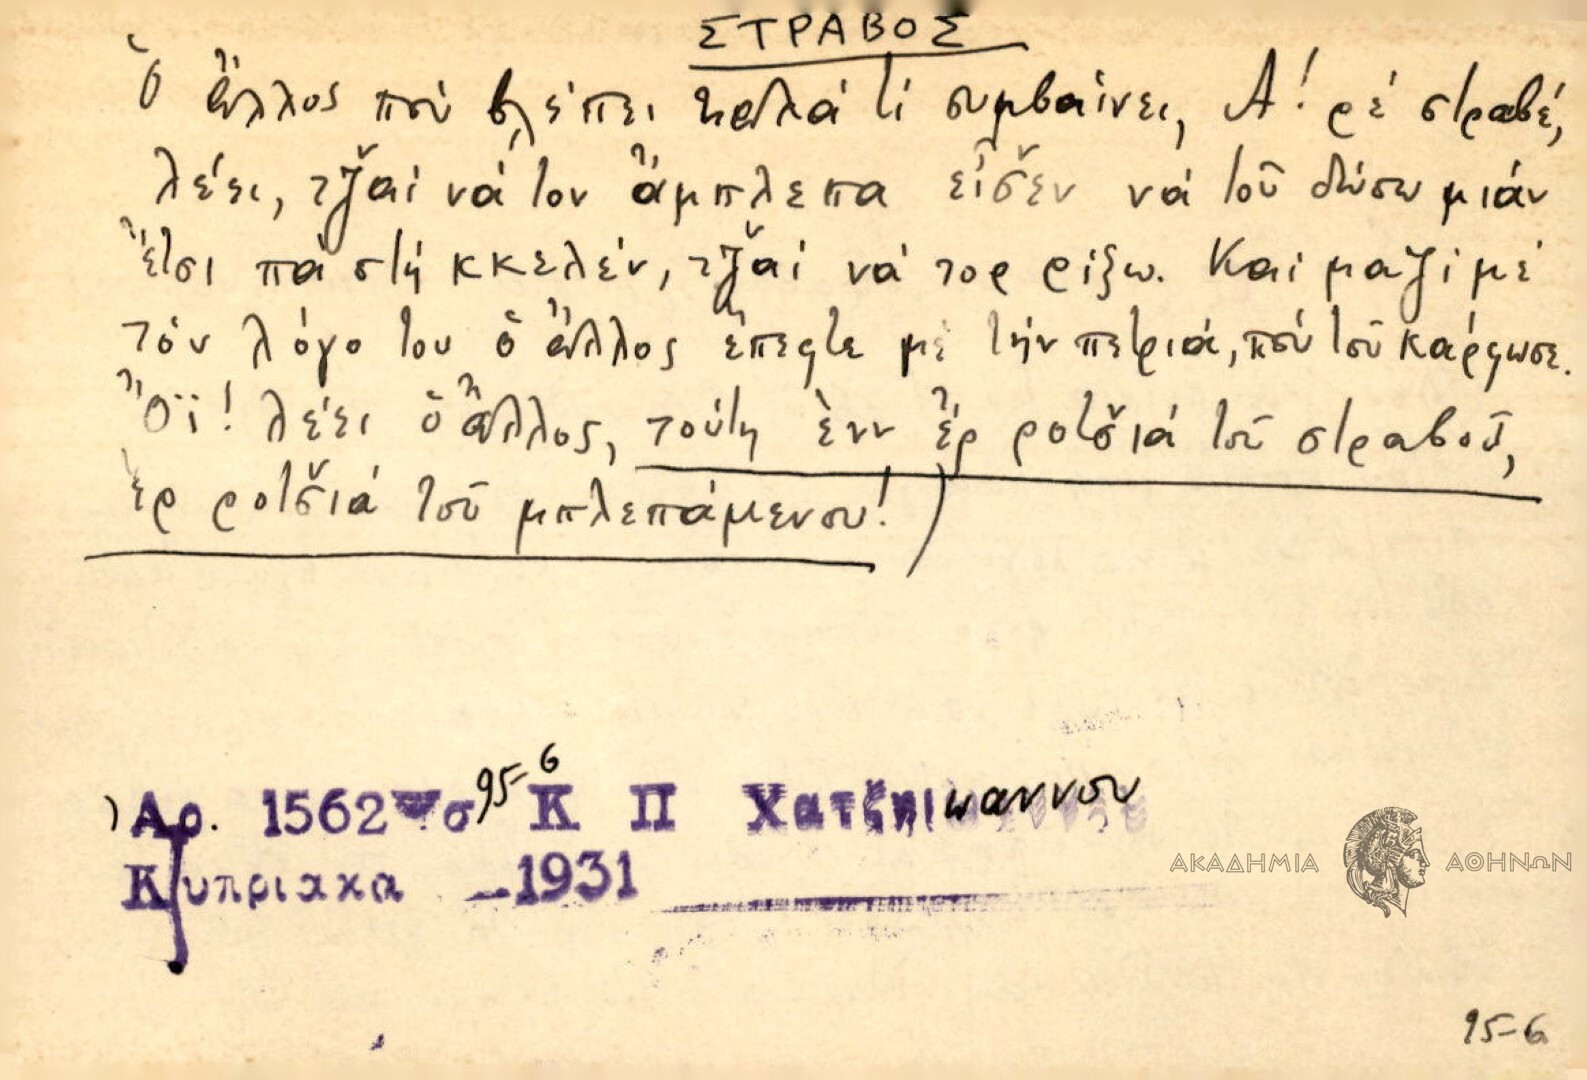 ΣΤΡΑΒΟΣ
Ὁ ἄλλος ποὺ βλέπει καλὰ τί συμβαίνει, Ἀ! ρέ στραβέ,
λέει, τζ̌αί νά τον ἄμπλεπα εἶσ̌εν νά τοῦ δώσω μιάν
ἔτσι πά στή κκελέν, τζ̌αί νά τορ ρίξω. Καί μαζί μέ
τόν λόγο του ὁ ἄλλος ἔπεφτε μέ τήν πετριά, πού τοῦ κάρφωσε.
Ὄϊ! λέει ὁ ἄλλος, τούτη ἐνν ἔρ ροτσ̌ιά τοῦ στραβοῦ,
ἐρ ροτσ̌ιά τοῦ μπλεπάμενου!)
Αρ. 1562 σ 95-6 Κ Π Χατζηιωαννου
Κυπριακα -1931
ΑΚΑΔΗΜΙΑ ΑΘΗΝΩΝ
95-6